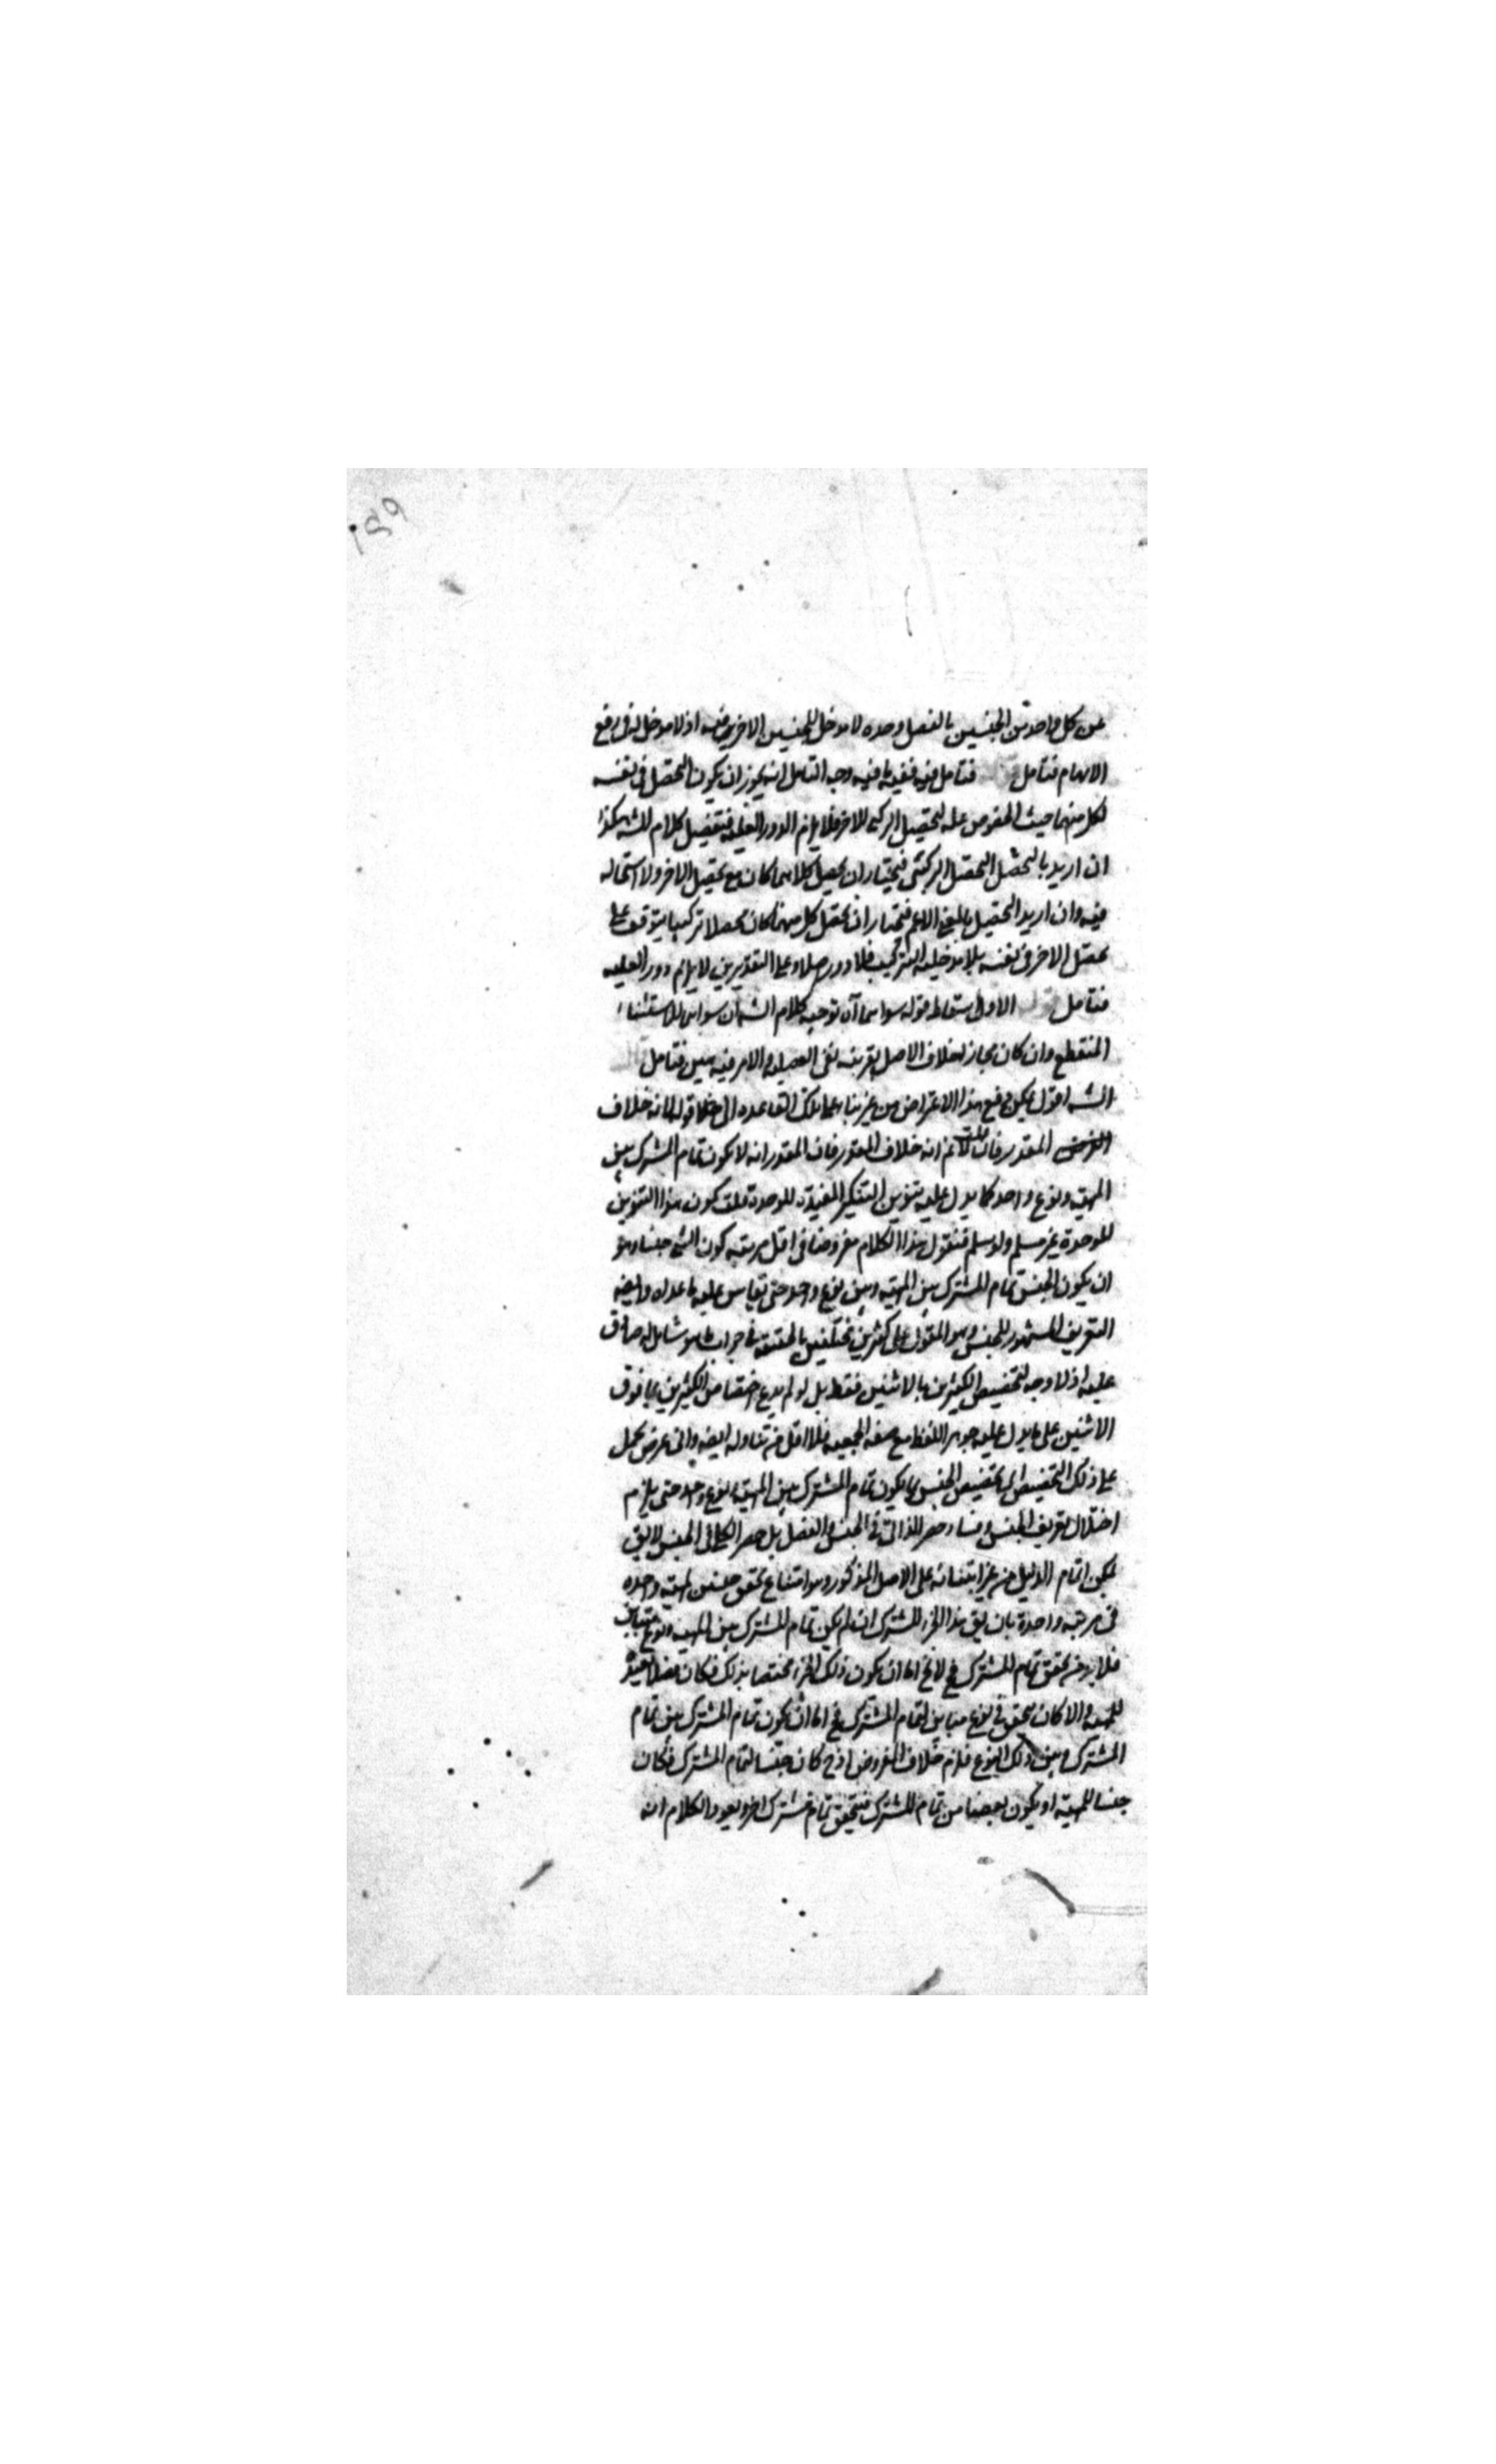 عن كل واحد من الجنسين بالفصل وحده لا مدخل للجنسين الاخرين فيه اذ لا مدخل له فى رفع
الابهام فتامل فتامل فيه ففيه ما فيه وجه التامل انه يجوز ان يكون التحصل فى نفسه
لكل منهما حيث المفروض عله لتحصيل التركيبى للاخر فلا يلزم الدور العليه فتفصيل كلام الشه هكذا
ان اريد بالتحصل التحصل التركيبى فيختار ان تحصل كلاهما كان مع تحصيل الاخر ولا استحاله
فيه وان اريد التحصيل بالمعنى الاعم فنختار ان تحصل كل منهما كان تحصلا تركيبيا يتوقف على
تحصل الاخر فى نفسه بلا مدخليه التركيب فلا دور اصلا وعلى التقديرين لا يلزم دور العليه
فتامل الاولى اسقاط قوله سواهما آه توجيه كلام الشه ان سواهما للاستثناء
المنقطع وان كان مجازا خلاف الاصل بقرينه نفى والامر فيه هين فتامل
الشه اقول يمكن دفع هذا الاعتراض من غير بناء على تلك القاعده الى قوله لانه خلاف
المقدر فان قلت لا نم انه خلاف المقدر فان المقدر انه لا يكون تمام المشترك بين
المهيه ونوع واحد كما يدل عليه تنوين التنكير المفيدة للوحدة قلت كون هذا التنوين
للوحدة غير مسلم ولو سلم فنقول هذا الكلام مفروضا فى اقل مرتبه كون الشئ جنسا وهو
ان يكون الجنس تمام المشترك بين المهيه وبين نوع واحد حتى يقاس عليه ما عداه وايضه
التعريف المشهور للجنس وهو المقول على كثيرين مختلفين بالحقيقه فى جواب ما هو شامل له صادق
عليه اذ لا وجه لتخصيص الكثيرين بالاثنين فقط بل لو لم يدع اختصاص الكثيرين بما فوق
الاثنين على ما يدل عليه جوهر اللفظ مع صيغه الجمعيه فلا اقل من تناوله ايضه واى غرض يحمل
على ذلك التخصيص اى تخصيص الجنس بما يكون تمام المشترك بين المهيه ونوع واحد حتى يلزم
اختلال تعريف الجنس وفساد حصر الذاتى فى الجنس والفصل بل حصر الكلى فى الخمس لا يق
يمكن اتمام الدليل من غير ابتنائه على الاصل المذكور وهو امتناع تحقق جنسين لمهيه واحده
فى مرتبه واحدة بان يق هذا الجزء المشترك ان لم يكن تمام المشترك بين المهيه ونوع مباين
فلا بد من تحقق تمام المشترك فح لا يخ اما ان يكون ذلك الجزء مختصا بذلك فكان فصلا بعيدا
للمهيه والا كان تحقق فى نوع مباين لتمام المشترك فح اما ان يكون تمام المشترك بين تمام
المشترك وبين ذلك النوع فلزم خلاف المفروض اذ ح كان جنسا لتمام المشترك فكان
جنسا للمهيه او يكون بعضا من تمام المشترك فيتحقق تمام مشترك اخر ويعود الكلام انه